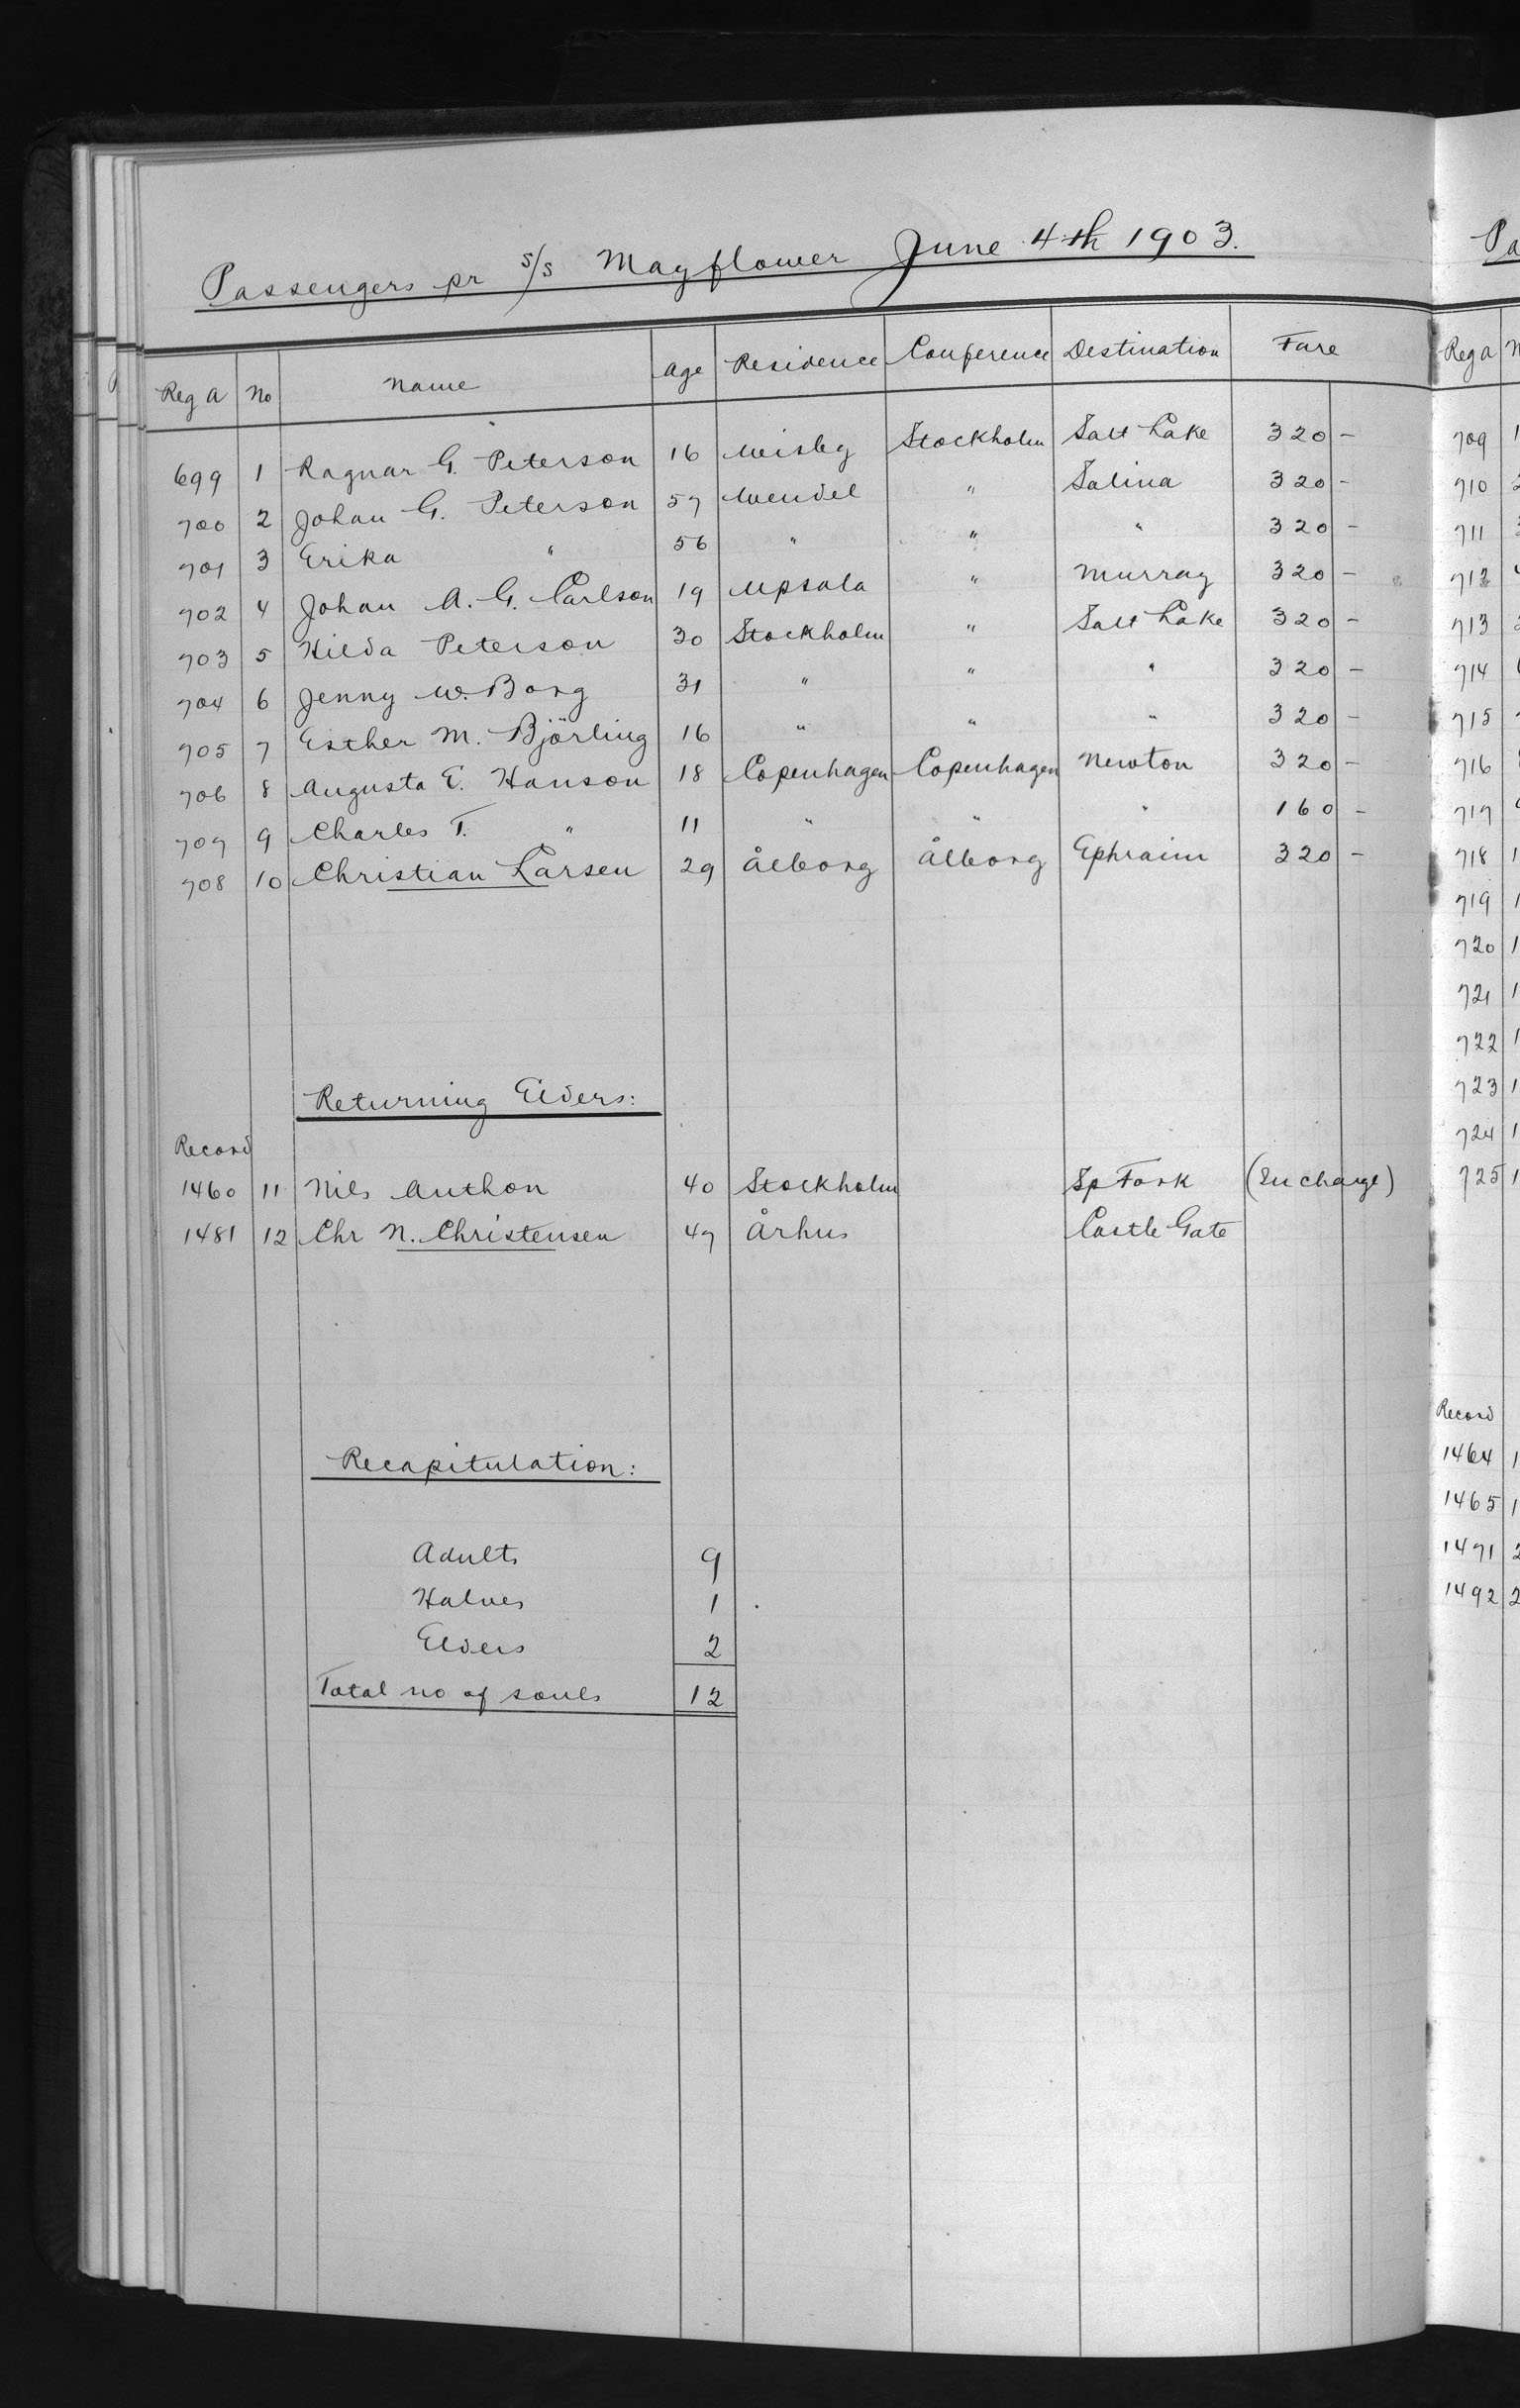 Passengers pr s/s Mayflower June 4th 1903.
Reg A No Name Age Residence Conference Destination Fare
699 1 Ragnar G. Peterson 16 Wisby Stockholm Salt Lake 320 -
700 2 Johan G. Peterson 57 Wendel " Salina 320 -
701 3 Erika " 56 " " " 320 -
702 4 Johan A. G. Carlson 19 Upsala " Murray 320 -
703 5 Hilda Peterson 30 Stockholm " Salt Lake 320 -
704 6 Jenny W. Borg 31 " " " 320 -
705 7 Esther M. Björling 16 " " " 320 -
706 8 Augusta E. Hanson 18 Copenhagen Copenhagen Newton 320 -
707 9 Charles T. " 11 " " " 160 -
708 10 Christian Larsen 29 Ålborg Ålborg Ephraim 320 -
Returning Elders:
Record
1460 11 Nils Anthon 40 Stockholm Sp Fork (In charge)
1481 12 Chr N. Christensen 47 Århus Castle Gate
Recapitulation:
Adults 9
Halves 1
Elders 2
Total no of souls 12
Pa
Reg A N
709 1
710 2
711 3
712 4
713
714
715
716
717
718 1
719 1
720 1
721 1
722 1
723 1
724 1
725 1
Record
1464 1
1465 1
1471 2
1492 2